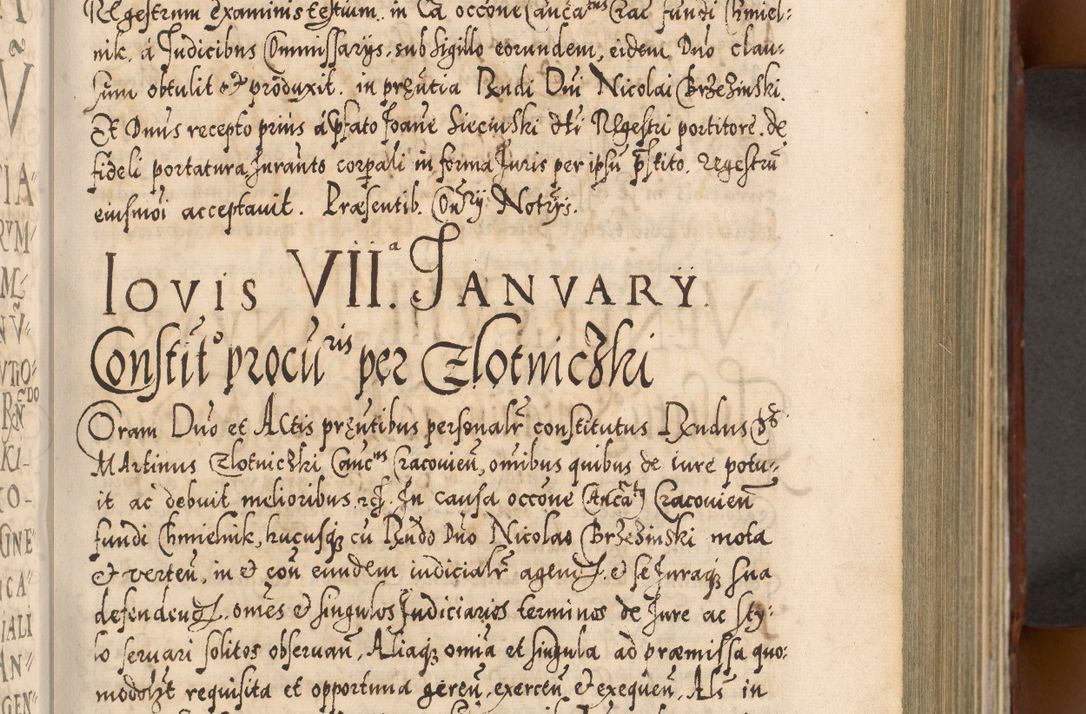 Regestrum examinis testium in Ca occone Cancatus Crac fundi Chmiel:
nik, á Judicibus Commissarijs sub sigillo eorundem, eidem Dno clau:
sum obtulit et produxit. in prezntia Rndi Dni Nicolai Brzezinski.
Et Dnus recepto prius á pfato Joane Sieciński dti Regestri portitore, de
fideli portatura Juranto corpali in forma Juris per ipsũ pstito, regestrũ
eiusmoi acceptauit. Præsentib. Notrijs.
Iovis VII.a Ianvary.
Constito procuris per Zlotniczki
Coram Dno et Actis prezntibus personalr constitutus Rndus D.
Martinus Zlotniczki Cancus Cracovien, omibus quibus de iure potu-
it ac debuit melioribus In causa occone Cracovien
fundi Chmielnik, hucusq cũ Rndo Dno Nicolao Brzezinski mota
et verten, in et con eundem iudicialr agend. et se Juraq sua
defendend. omes et singulos Judiciarios terminos de Jure ac sty-
lo servari solitos observan, Aliaq omia et singula ad præmissa quo-
modolt requisita et opportuna geren, exercen et exequen, Als in